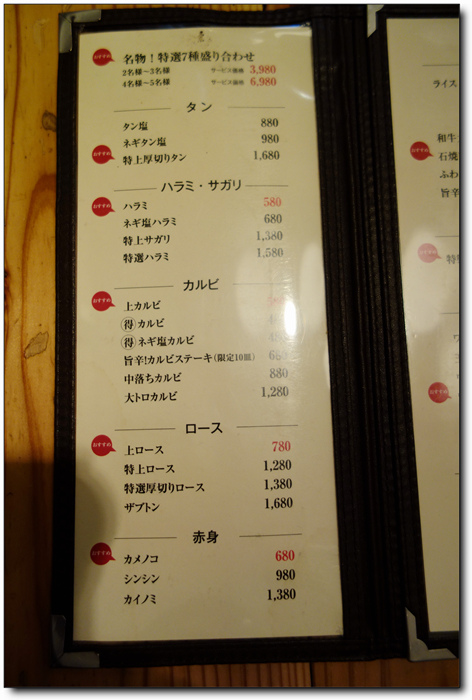 おすすめ 名物！特選7種盛り合わせ
2名様〜3名様 サービス価格 3,980
4名様〜5名様 サービス価格 6,980
タン
タン塩 880
ネギタン塩 980
おすすめ 特上厚切りタン 1,680
ハラミ・サガリ
おすすめ ハラミ 580
ネギ塩ハラミ 680
特上サガリ 1,380
特選ハラミ 1,580
カルビ
おすすめ 上カルビ
得 カルビ
得 ネギ塩カルビ
旨辛!カルビステーキ(限定10皿) 680
中落ちカルビ 880
大トロカルビ 1,280
ロース
おすすめ 上ロース 780
特上ロース 1,280
特選厚切りロース 1,380
ザブトン 1,680
赤身
おすすめ カメノコ 680
シンシン 980
カイノミ 1,380
ライス
和牛
おすすめ 石焼
ふわ
旨辛
おすすめ 特
おすすめ